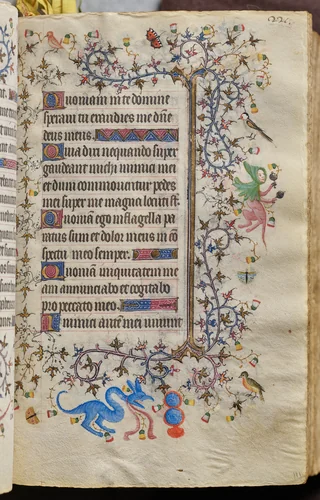 Quoniam in te domine
speraui tu exaudies me dñe
deus meus
Quia dixi nequando super
gaudeant michi inimici mei
et dum commouentur pedes
mei super me magna locuti st̃
Quoniã ego in flagella pa
ratus sum et dolor meus in cõ
spectu meo semper.
Quoniã iniquitatem me
am annunciabo et cogitabo
pro peccato meo
Inimici autẽ mei uiuunt